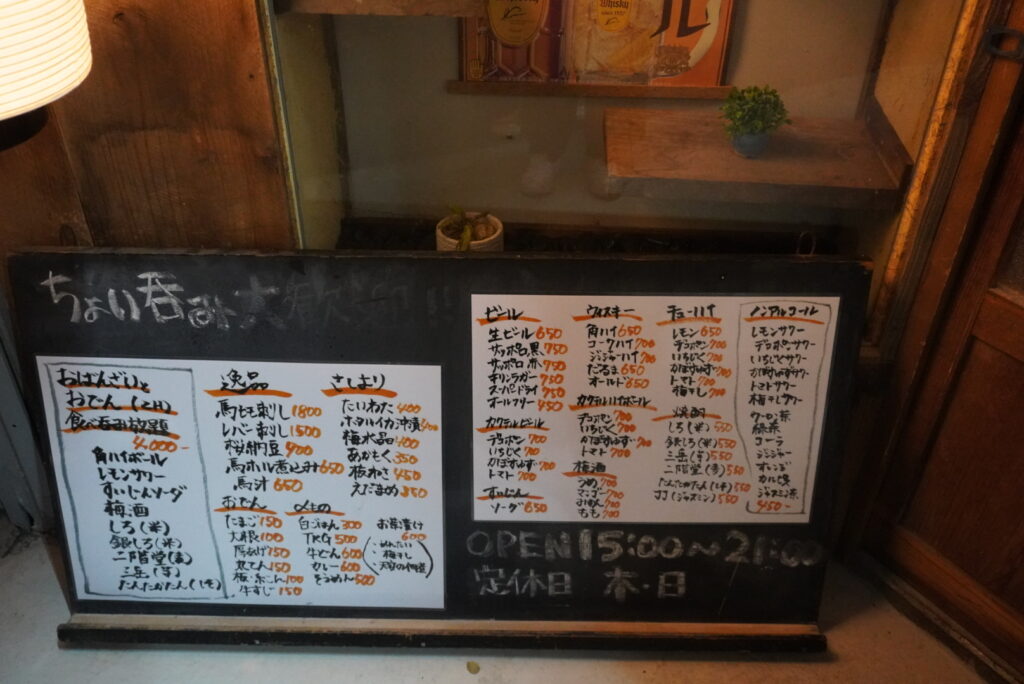 Whisky
ちょい呑み大歓迎!!
おばんざいと
おでん(2H)
食べ呑み放題
4,000-
角ハイボール
レモンサワー
すいじんソーダ
梅酒
しろ(米)
銀しろ(米)
二階堂(麦)
三岳(芋)
たんたかたん(しそ)
逸品
馬もも刺し 1800
レバー刺し 1500
桜納豆 900
馬ホル煮込み 650
馬汁 650
おでん
たまご 150
大根 100
厚あげ 150
丸てん 150
板・糸こん 100
牛すじ 150
さしより
たいわた 400
ホタルイカ沖漬 400
梅水晶 400
あかもく 350
板わさ 450
えだまめ 350
〆もの
白ごはん 300
TKG 500
牛どん 600
カレー 600
そうめん 500
お茶漬け
600
・めんたい
・梅干し
ビール
生ビール 650
サッポロ黒 750
サッポロ赤 750
キリンラガー 750
スーパードライ 750
オールフリー 450
カクテルビール
デコポン 700
いちじく 700
かぼすゆず 700
トマト 700
すいじん
ソーダ 650
ウィスキー
角ハイ 650
コークハイ 700
ジンジャーハイ 700
だるま 650
オールド 650
カクテルハイボール
デコポン 700
いちじく 700
かぼすゆず 700
トマト 700
梅酒
うめ 700
マンゴー 700
みかん 700
もも 700
チューハイ
レモン 650
デコポン 700
いちじく 700
かぼすゆず 700
トマト 700
梅干し 700
焼酎
しろ(米) 550
銀しろ(米) 550
三岳(芋) 550
二階堂(麦) 550
たんたかたん(しそ) 550
JJ(ジャスミン) 550
ノンアルコール
レモンサワー
デコポンサワー
いちじくサワー
かぼすゆずサワー
トマトサワー
梅干しサワー
ウーロン茶
緑茶
コーラ
ジンジャー
オレンジ
カルピス
ジャスミン茶
450-
OPEN 15:00〜21:00
定休日 木・日